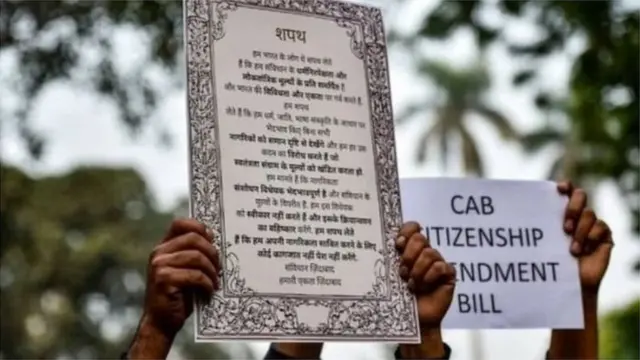 शपथ
हम भारत के लोग ये शपथ लेते
हैं कि हम संविधान के धर्मनिरपेक्षता और
लोकतांत्रिक मूल्यों के प्रति समर्पित हैं
और भारत की विविधता और एकता पर गर्व करते हैं.
हम शपथ
लेते हैं कि हम धर्म, जाति, भाषा संस्कृति के आधार पर
भेदभाव किए बिना सभी
नागरिकों को समान दृष्टि से देखेंगे और हम हर उस
कदम का विरोध करते हैं जो
स्वतंत्रता संग्राम के मूल्यों को खंडित करता हो.
हम मानते हैं कि नागरिकता
संशोधन विधेयक भेदभावपूर्ण है और संविधान के
मूल्यों के विपरीत है. हम इस विधेयक
को स्वीकार नहीं करते हैं और इसके क्रियान्वयन
का बहिष्कार करेंगे. हम शपथ लेते
हैं कि हम अपनी नागरिकता साबित करने के लिए
कोई कागजात नहीं पेश नहीं करेंगे.
संविधान ज़िंदाबाद
हमारी एकता ज़िंदाबाद
CAB
ITIZENSHIP
ENDMENT
BILL